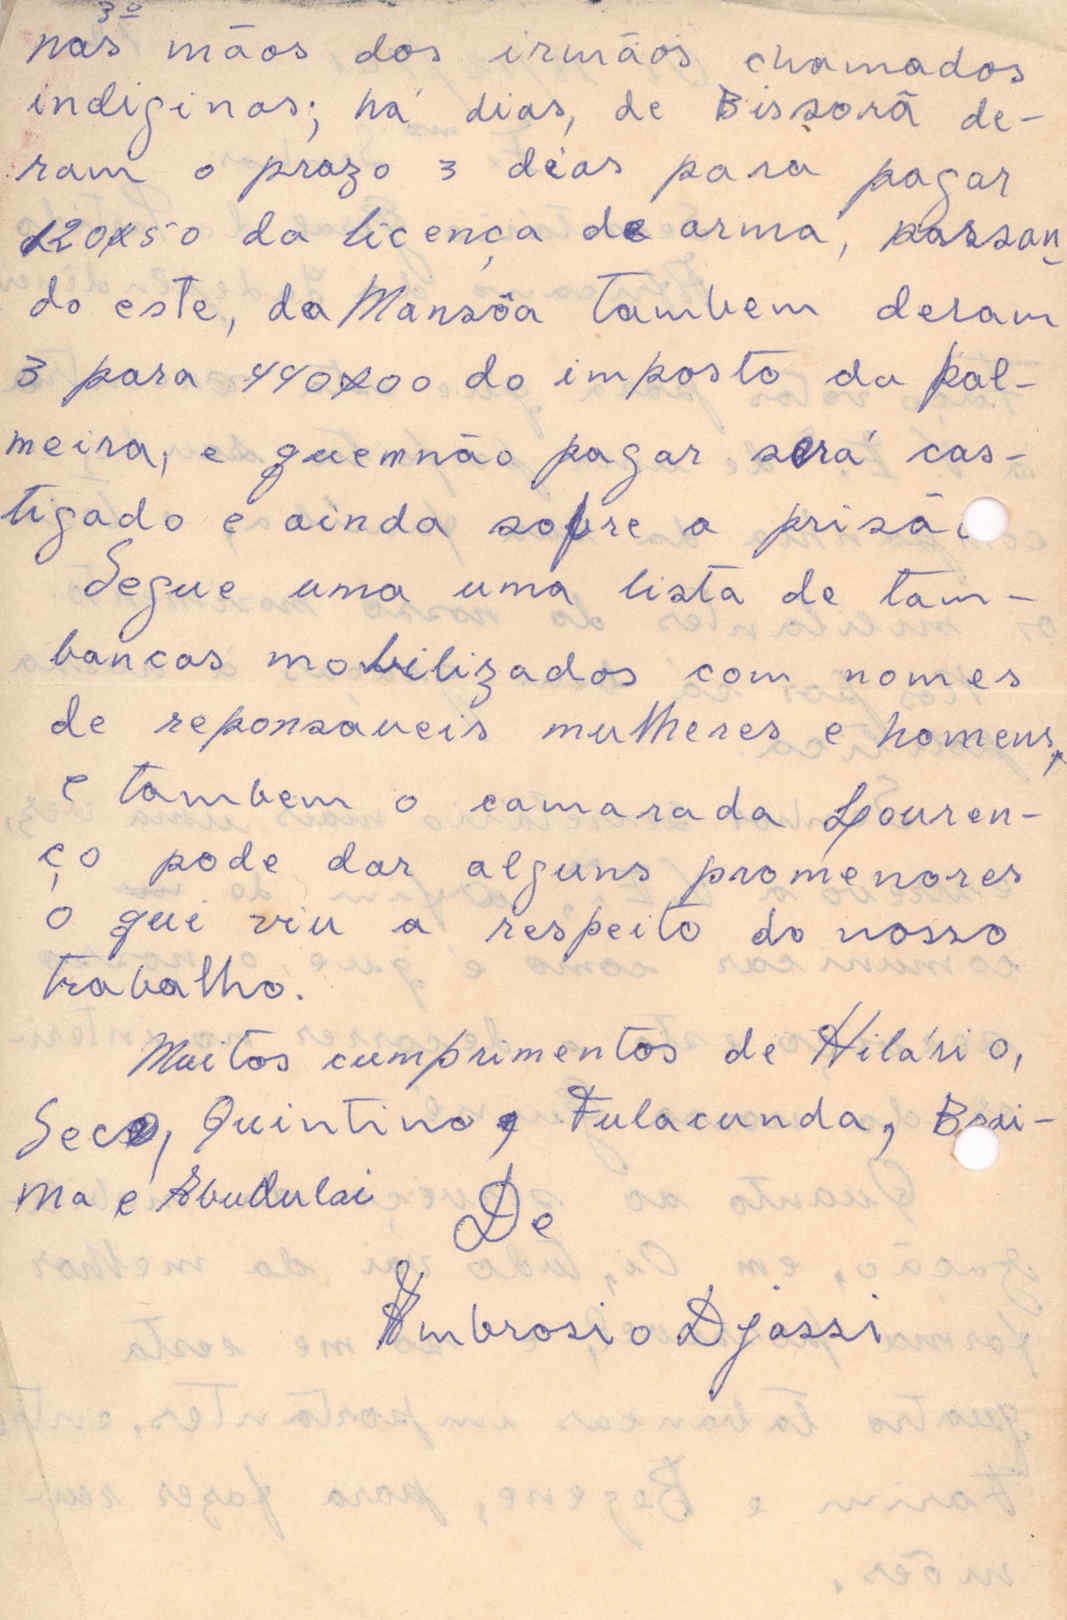 3º
nas mãos dos irmãos chamados
indiginas; há dias, de Bissorã de-
ram o prazo 3 dias para pagar
120$50 da licença de arma, passan
do este, da Mansôa tambem deram
3 para 440$00 do imposto da pal-
meira, e quemnão pagar será cas-
tigado e ainda sofre a prisão
Segue uma uma lista de tam-
bancas mobilizados com nomes
de reponsaveis mulheres e homens,
e tambem o camarada Louren-
ço pode dar alguns promenores
o qui viu a respeito do nosso
trabalho.
Muitos cumprimentos de Hilário,
Seco, Quintino, Fulacunda, Brai-
ma e Abudulai
De
Ambrosio Djassi